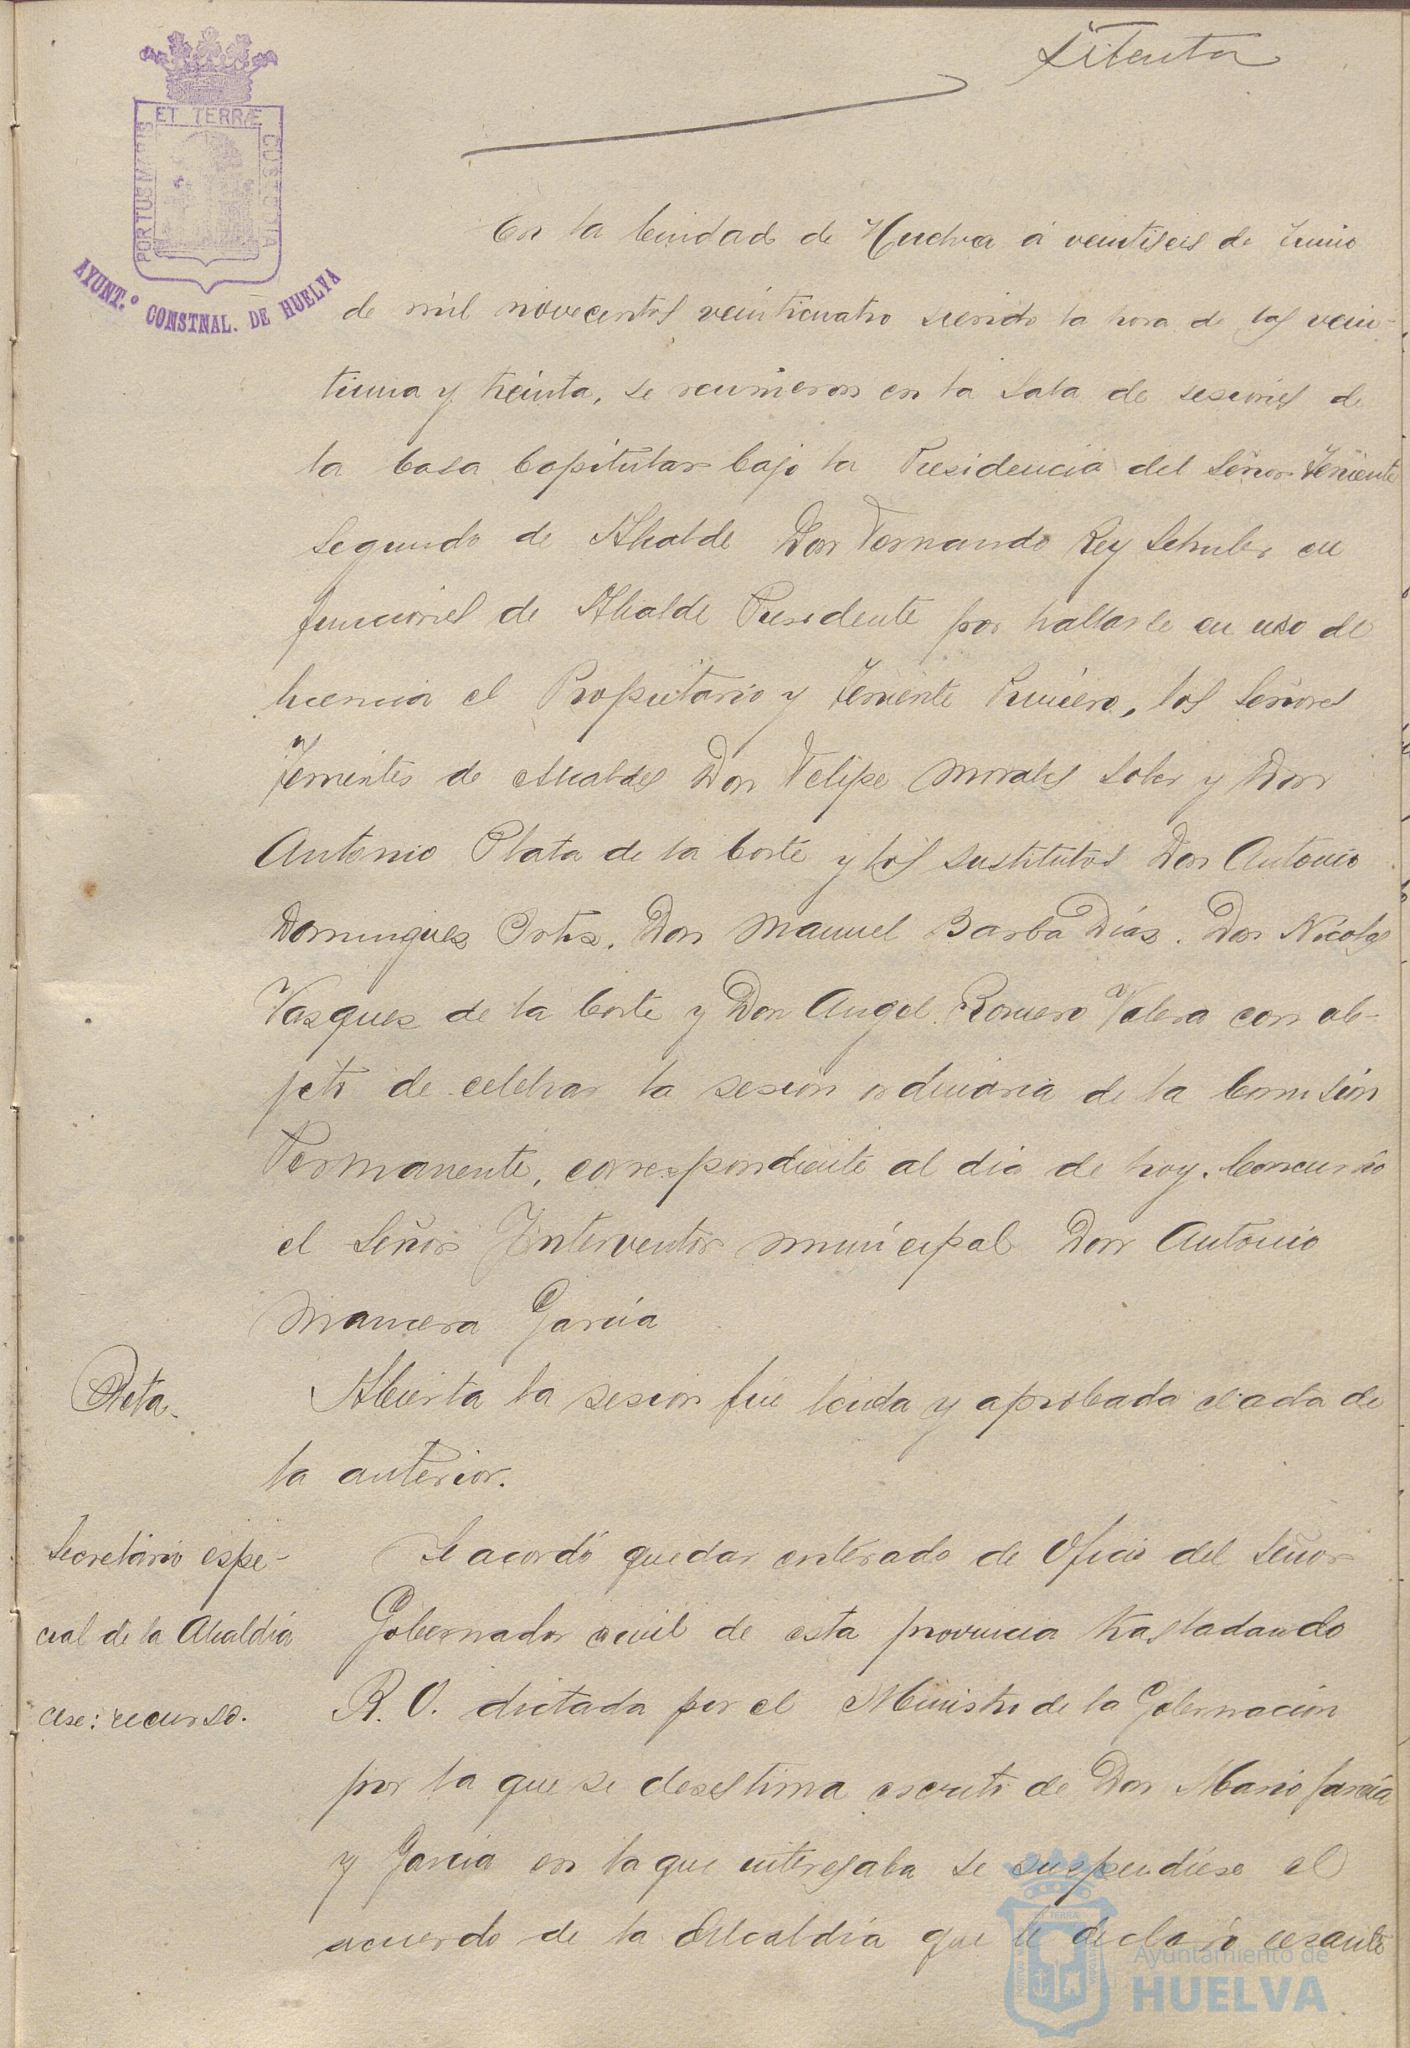 Setenta
ET TERRÆ
PORTUS MARIS
CUSTODIA
AYUNT.º CONSTNAL. DE HUELVA
En la Ciudad de Huelva á veintiseis de Junio
de mil novecentos veinticuatro siendo la hora de las vein-
tiuna y treinta, se reunieron en la Sala de sesiones de
la Casa Capitular bajo la Presidencia del Señor Teniente
segundo de Alcalde Don Fernando Rey Schuler en
funciones de Alcalde Presidente por hallarse en uso de
licencia el Propietario y Teniente Primero, los Señores
Tenientes de Alcaldes Don Felipe Morales Soler y Don
Antonio Plata de la Corte y los sustitutos Don Antonio
Dominguez Ortiz, Don Manuel Barba Díaz. Don Nicolas
Vasquez de la Corte y Don Angel Romero Valera con ob-
jeto de celebrar la sesion ordinaria de la Comisión
Permanente, correspondiente al dia de hoy. Concurrió
el Señor Interventor municipal Don Antonio
Mancera García
Acta.
Abierta la sesion fue leida y aprobada el acta de
la anterior.
Secretario espe-
cial de la Alcaldía
cese: recurso.
Se acordó quedar enterado de Oficio del Señor
Gobernador civil de esta provincia trasladando
R. O. dictada por el Ministro de la Gobernación
por la que se desestima escrito de Don Mario García
y Garcia en la que interesaba se suspendiese el
acuerdo de la Alcaldía que le declaró cesante
Ayuntamiento de
HUELVA